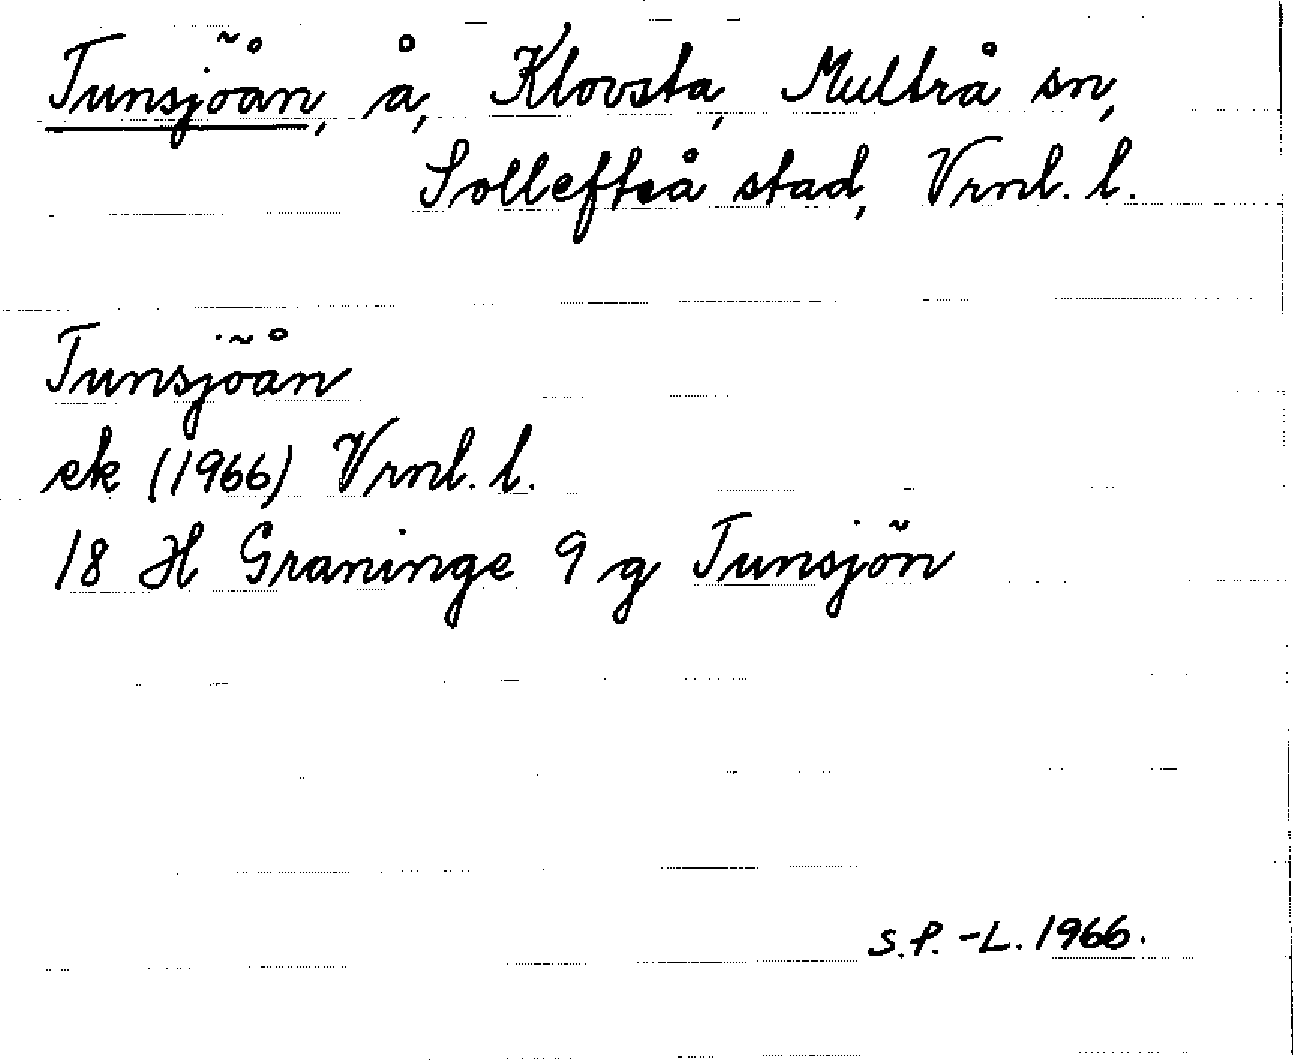 Tunsjöån, å, Klovsta, Multrå sn,
Sollefteå stad, Vrnl. l.
Tunsjöån
ek (1966) Vrnl. l.
18 H Graninge 9 g Tunsjön
S.P.-L. 1966.